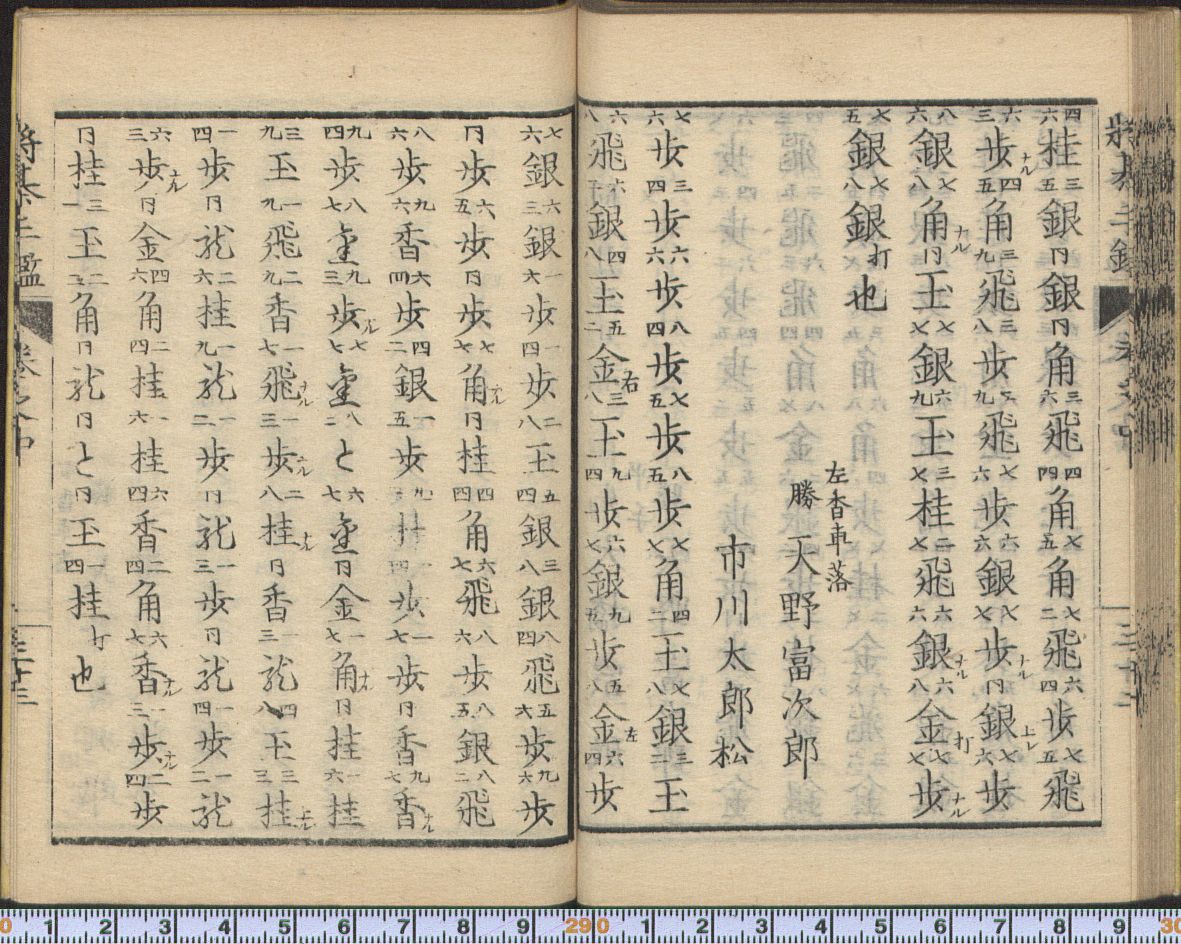 四六桂三五銀同銀同角三六飛四四角七五角七二飛六四歩七五飛
六三歩ナル四五角三九飛三八歩二九飛七六歩六六銀七七歩ナル同銀上ル七六歩
八六銀七八角ナル同王七七銀六九王三七桂二七飛六六銀ナル六八金打七七歩ナル
七五銀七八銀打也
左香車落
勝 天野富次郎
市川太郎松
七六歩三四歩六六歩八四歩七五歩八五歩七七角四二王七八銀三二王
六八飛六二銀四八王五二金右三八王九四歩六七銀九五歩五八金左六四歩
七六銀六三銀一六歩一四歩二八王五四銀三八銀八四飛五六歩九六歩
同歩六五歩同歩七七角ナル同桂四四角六七飛八六歩八五銀八二飛
八六歩九六香六四歩四二銀一五歩九三桂一四歩一七歩同香九七香ナル
九四歩八七金九三歩ナル七七金八二と六七金同金一七角ナル同桂一六桂
三九王一九飛二九香一七飛ナル一三歩ナル二八桂ナル同香一三龍四八王三三桂ナル
一四歩同龍二六桂一九龍一二歩同龍一三歩同龍一四歩一二龍
六三歩ナル同金四六角二四桂一六桂六四香二四角六七香ナル一三歩ナル二四歩
同桂三一王二二角同龍同と同王一四桂打也
三十三